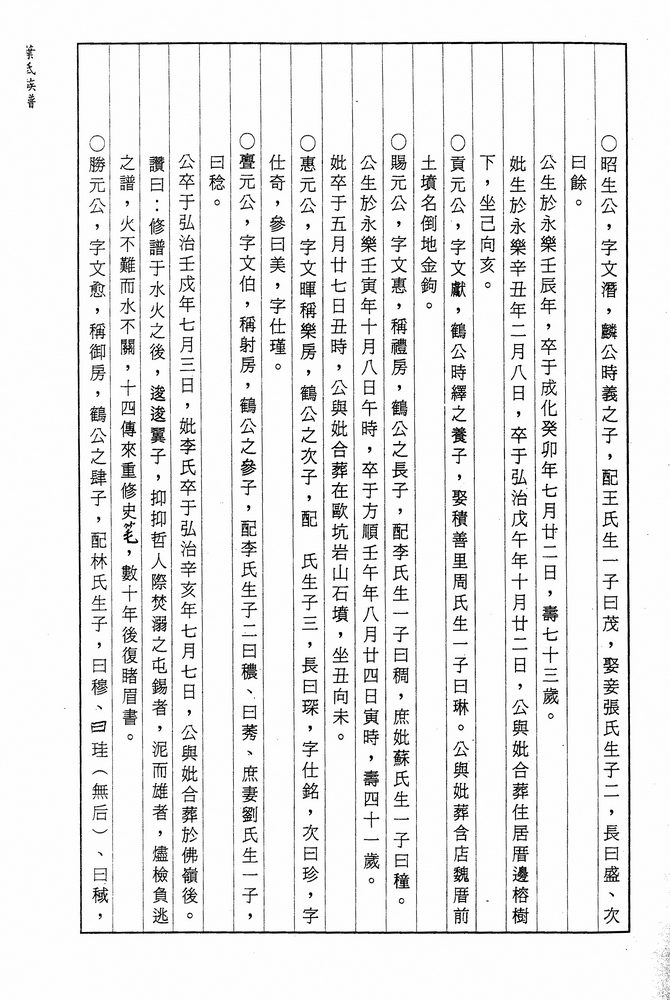 葉氏族譜
○昭生公，字文潛，麟公時義之子，配王氏生一子曰茂，娶妾張氏生子二，長曰盛、次
曰餘。
公生於永樂壬辰年，卒于成化癸卯年七月廿二日，壽七十三歲。
妣生於永樂辛丑年二月八日，卒于弘治戊午年十月廿二日，公與妣合葬住居厝邊榕樹
下，坐己向亥。
○貢元公，字文獻，鶴公時繹之養子，娶積善里周氏生一子曰琳。公與妣葬含店魏厝前
土墳名倒地金鉤。
○賜元公，字文惠，稱禮房，鶴公之長子，配李氏生一子曰稠，庶妣蘇氏生一子曰穜。
公生於永樂壬寅年十月八日午時，卒于方順壬午年八月廿四日寅時，壽四十一歲。
妣卒于五月廿七日丑時，公與妣合葬在歐坑岩山石墳，坐丑向未。
○惠元公，字文暉稱樂房，鶴公之次子，配　氏生子三，長曰琛，字仕銘，次曰珍，字
仕奇，參曰美，字仕瑾。
○亹元公，字文伯，稱射房，鶴公之參子，配李氏生子二曰穠、曰莠、庶妻劉氏生一子，
曰稔。
公卒于弘治壬戌年七月三日，妣李氏卒于弘治辛亥年七月七日，公與妣合葬於佛嶺後。
讚曰：修譜于水火之後，逡逡翼子，抑抑哲人際焚溺之屯錫者，泥而雄者，燼檢負逃
之譜，火不難而水不關，十四傳來重修史笔，數十年後復睹眉書。
○勝元公，字文愈，稱御房，鶴公之肆子，配林氏生子，曰穆、曰珪（無后）、曰棫，